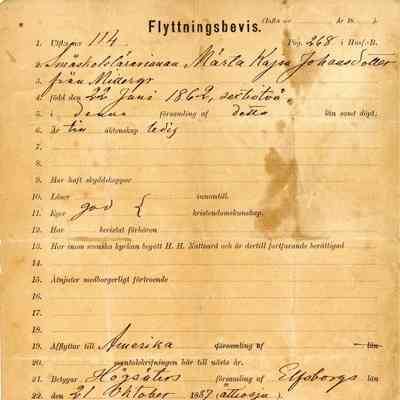 Flyttningsbevis.
1. Utflyttn 114. Pag. 268 i Husf.-B.
2. Småskolelärarinnan Märta Kajsa Johansdotter
3. från
4. född den 22 Juni 1862, sextiotvå
5. i denna församling af detta län samt döpt;
6. är till äktenskap ledig
7.
8.
9. Har haft skyddskoppor
10. Läser innantill.
11. Eger god { kristendomskunskap.
12. Har bevistat förhören
13. Har inom svenska kyrkan begått H. H. Nattvard och är dertill fortfarande berättigad
14.
15. Åtnjuter medborgerligt förtroende
16.
17.
18.
19. Afflyttar till Amerika församling af län
20. mantalskrifningen här till nästa år.
21. Betygar Högsäters församling af Elfsborgs län
22. den 21 Oktober 1887 (åttiosju)